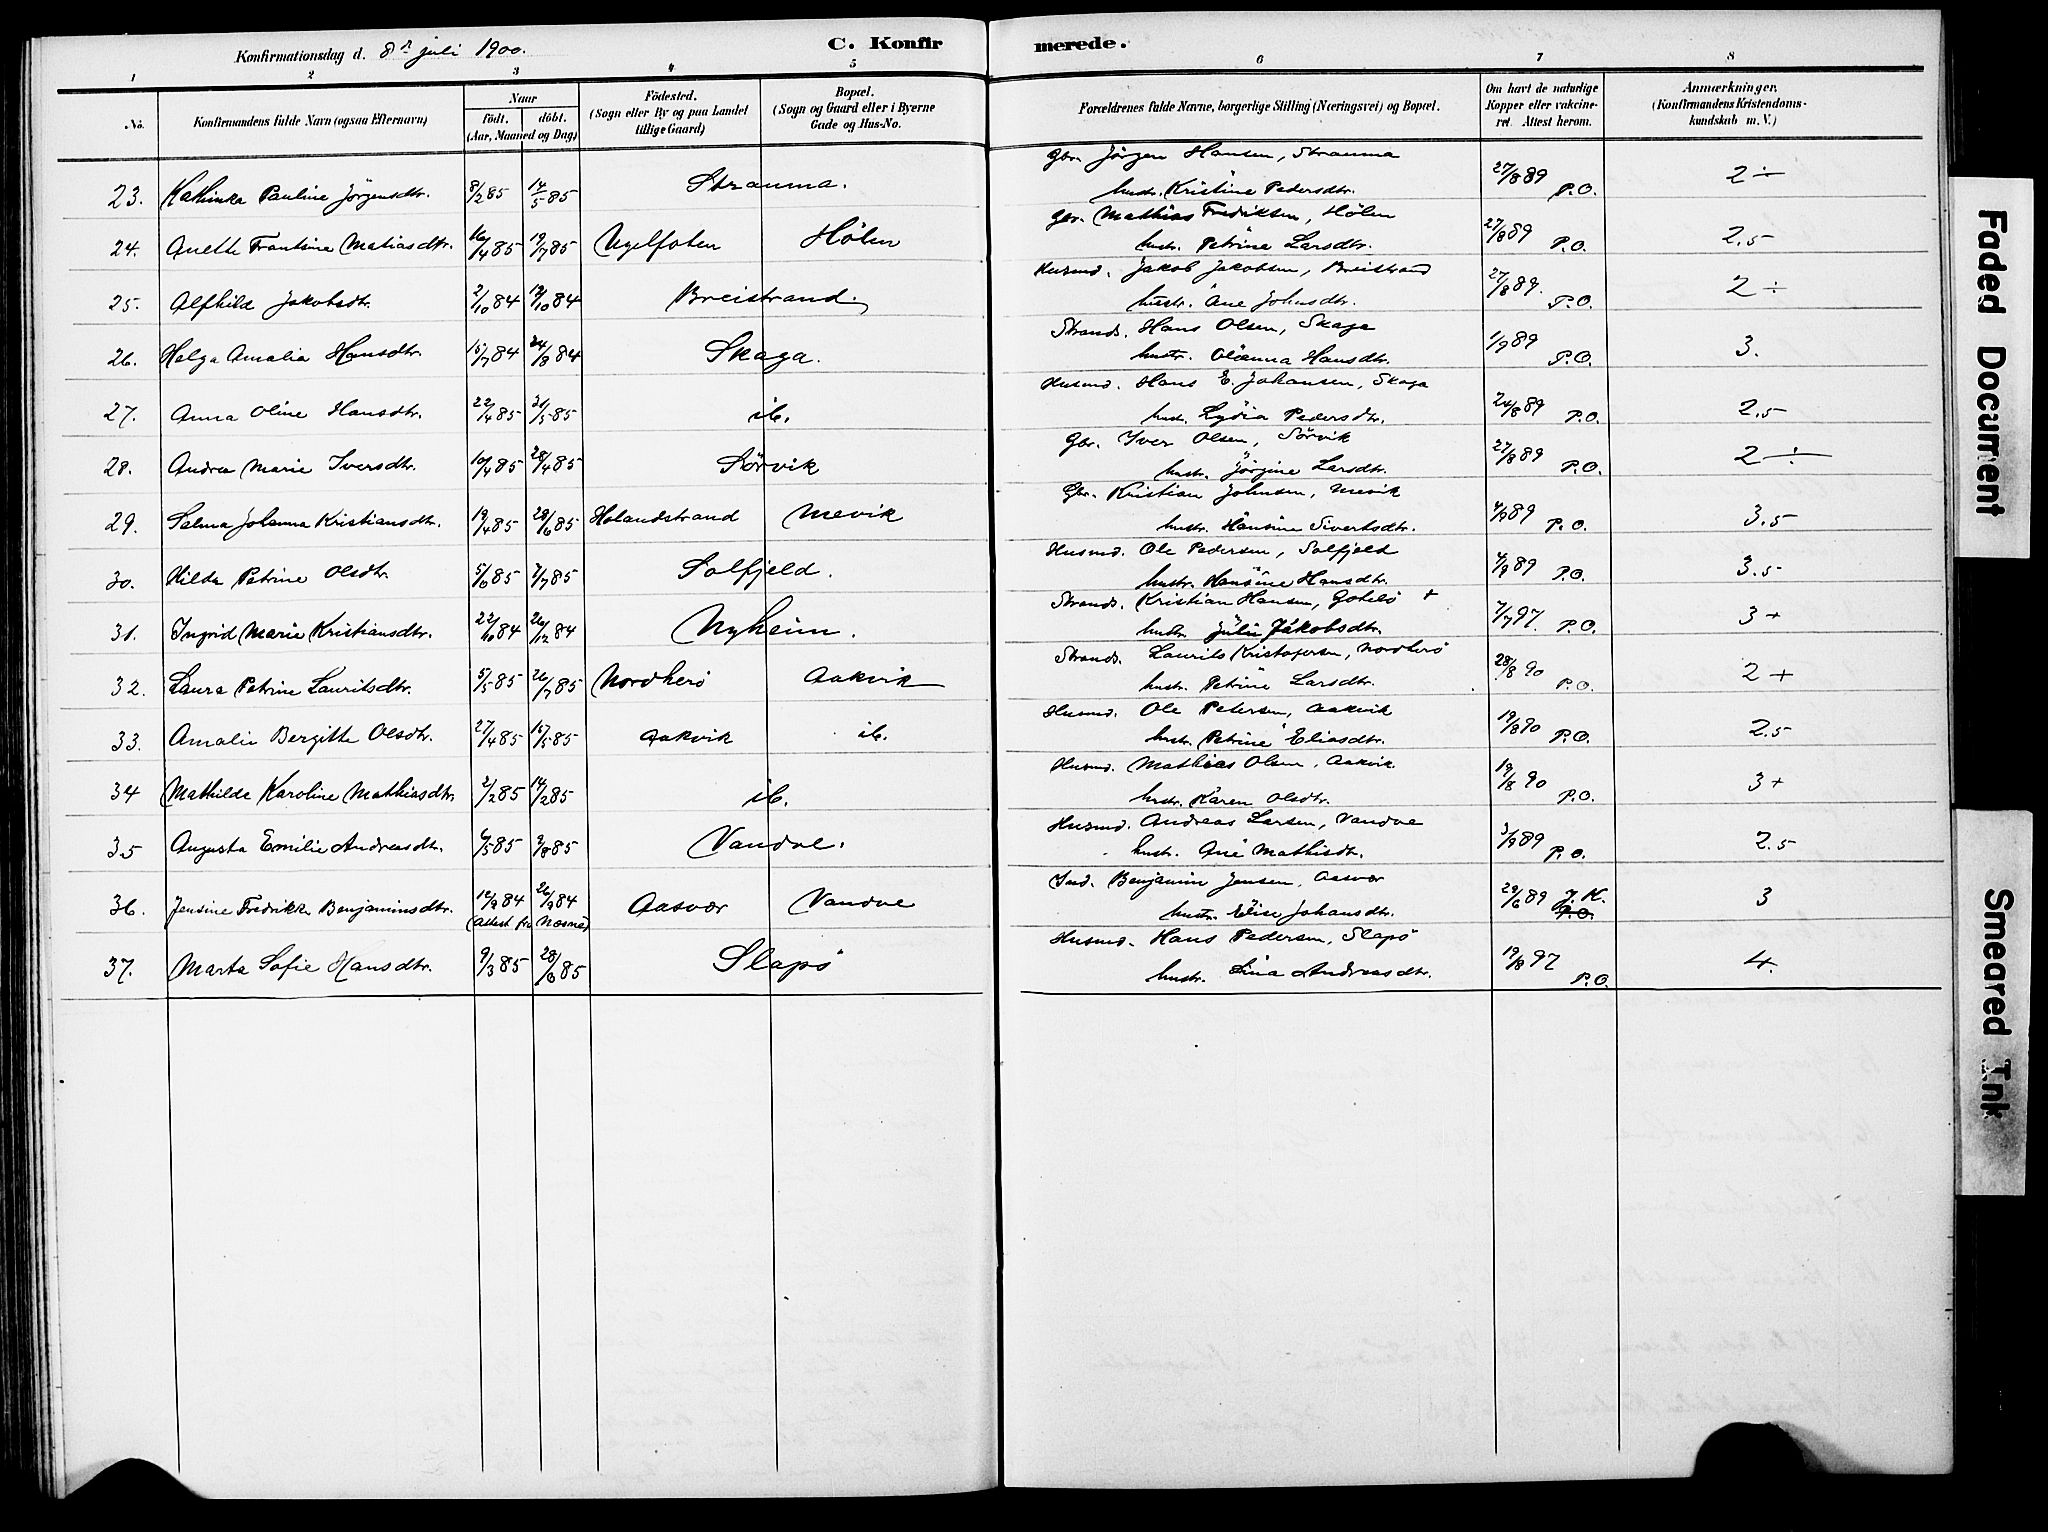 Konfirmationsdag d. 8de juli 1900. C. Konfirmerede.
1 2 3 4 5 6 7 8
No. Konfirmandens fulde Navn (ogsaa Efternavn) Naar födt. döbt. (Aar, Maaned og Dag) Födested. (Sogn eller By og paa Landet tillige Gaard) Bopæl. (Sogn og Gaard eller i Byerne Gade og Hus-No. Forældrenes fulde Navne, borgerlige Stilling (Næringsvei) og Bopæl. Om havt de naturlige Kopper eller vakcineret. Attest herom. Anmærkninger. (Konfirmandens Kristendomskundskab m. V.)
Gbr. Jörgen Hansen, Strauma
23. Kathinka Pauline Jörgensdtr. 8/2 85 14/5 85 Strauma. hustr. Kristine Pedersdtr. 27/8 89 P.O. 2 ÷
Gbr. Mathias Fredriksen, Hölen
24. Anette Frantsine Matiasdtr. 16/4 85 19/7 85 Hölen hustr. Petrine Larsdtr. 27/8 89 P.O. 2.5
Husmd. Jakob Jakobsen, Breistrand
25. Alfhild Jakobsdtr. 2/10 84 12/10 84 Breistrand. hustr. Ane Johnsdtr. 27/8 89. P.O. 2 ÷
Strands. Hans Olsen, Skaga
26. Helga Amalia Hansdtr. 15/7 84 24/8 84 Skaga. hustr. Oleanna Hansdtr. 1/9 89 P.O. 3.
Husmd. Hans E. Johansen, Skaga
27. Anna Oline Hansdtr. 22/4 85 31/5 85 ib. hustr. Lydia Pedersdtr. 24/8 89 P.O. 2.5
Gbr. Iver Olsen, Sörvik
28. Andrea Marie Iversdtr. 10/4 85 28/4 85 Sörvik hustr. Jörgine Larsdtr. 27/8 89 P.O. 2 ÷
Gbr. Kristian Johnsen, Mevik
29. Selma Johanna Kristiansdtr. 19/4 85 28/6 85 Holandstrand Mevik hustr. Hansine Sivertsdtr. 4/9 89 P.O. 3.5
Husmd. Ole Pedersen, Solfjeld
30. Hilda Petrine Olsdtr. 5/6 85 7/7 85 Solfjeld. hustr. Hansine Hansdtr. 4/9 89 P.O. 3.5
Strands. Kristian Hansen, +
31. Ingrid Marie Kristiansdtr. 22/10 84 26/12 84 Nyheim. hustr. Julie Jakobsdtr. 7/7 97. P.O. 3+
Strands. Laurits Kristofersen, Nordherö
32. Laura Petrine Lauritsdtr. 5/5 85 26/7 85 Nordherö Aakvik hustr. Petrine Larsdtr. 28/8 90 P.O. 2 +
Husmd. Ole Petersen, Aakvik
33. Amalie Bergitte Olsdtr. 27/4 85 15/5 85 Aakvik ib. hustr. Petrine Eliasdtr. 19/8 90 P.O. 2.5
Husmd. Mathias Olsen, Aakvik.
34 Mathilde Karoline Mathiasdtr. 2/2 85 14/2 85 ib. hustr. Karen Olsdtr. 19/8 90 P.O. 3+
Husmd. Andreas Larsen, Vandve
35 Augusta Emilie Andreasdtr. 6/5 85 9/8 85 Vandve. hustr. Ane Mathisdtr. 3/9 89 P.O. 2.5
Ind. Benjamin Jensen, Aasvær
36. Jensine Fredrikke Benjaminsdtr. 12/9 84 26/9 84 (Attest fra Næsne) Aasvær Vandve hustr. Elise Johansdtr. 29/6 89 J.K. P.O. 3
Husmd. Hans Pedersen, Slapö
37. Marta Sofie Hansdtr. 9/3 85 28/6 85 Slapö hustr. Lina Andreasdtr. 19/8 97 P.O. 4.
Faded Document
Smeared Ink